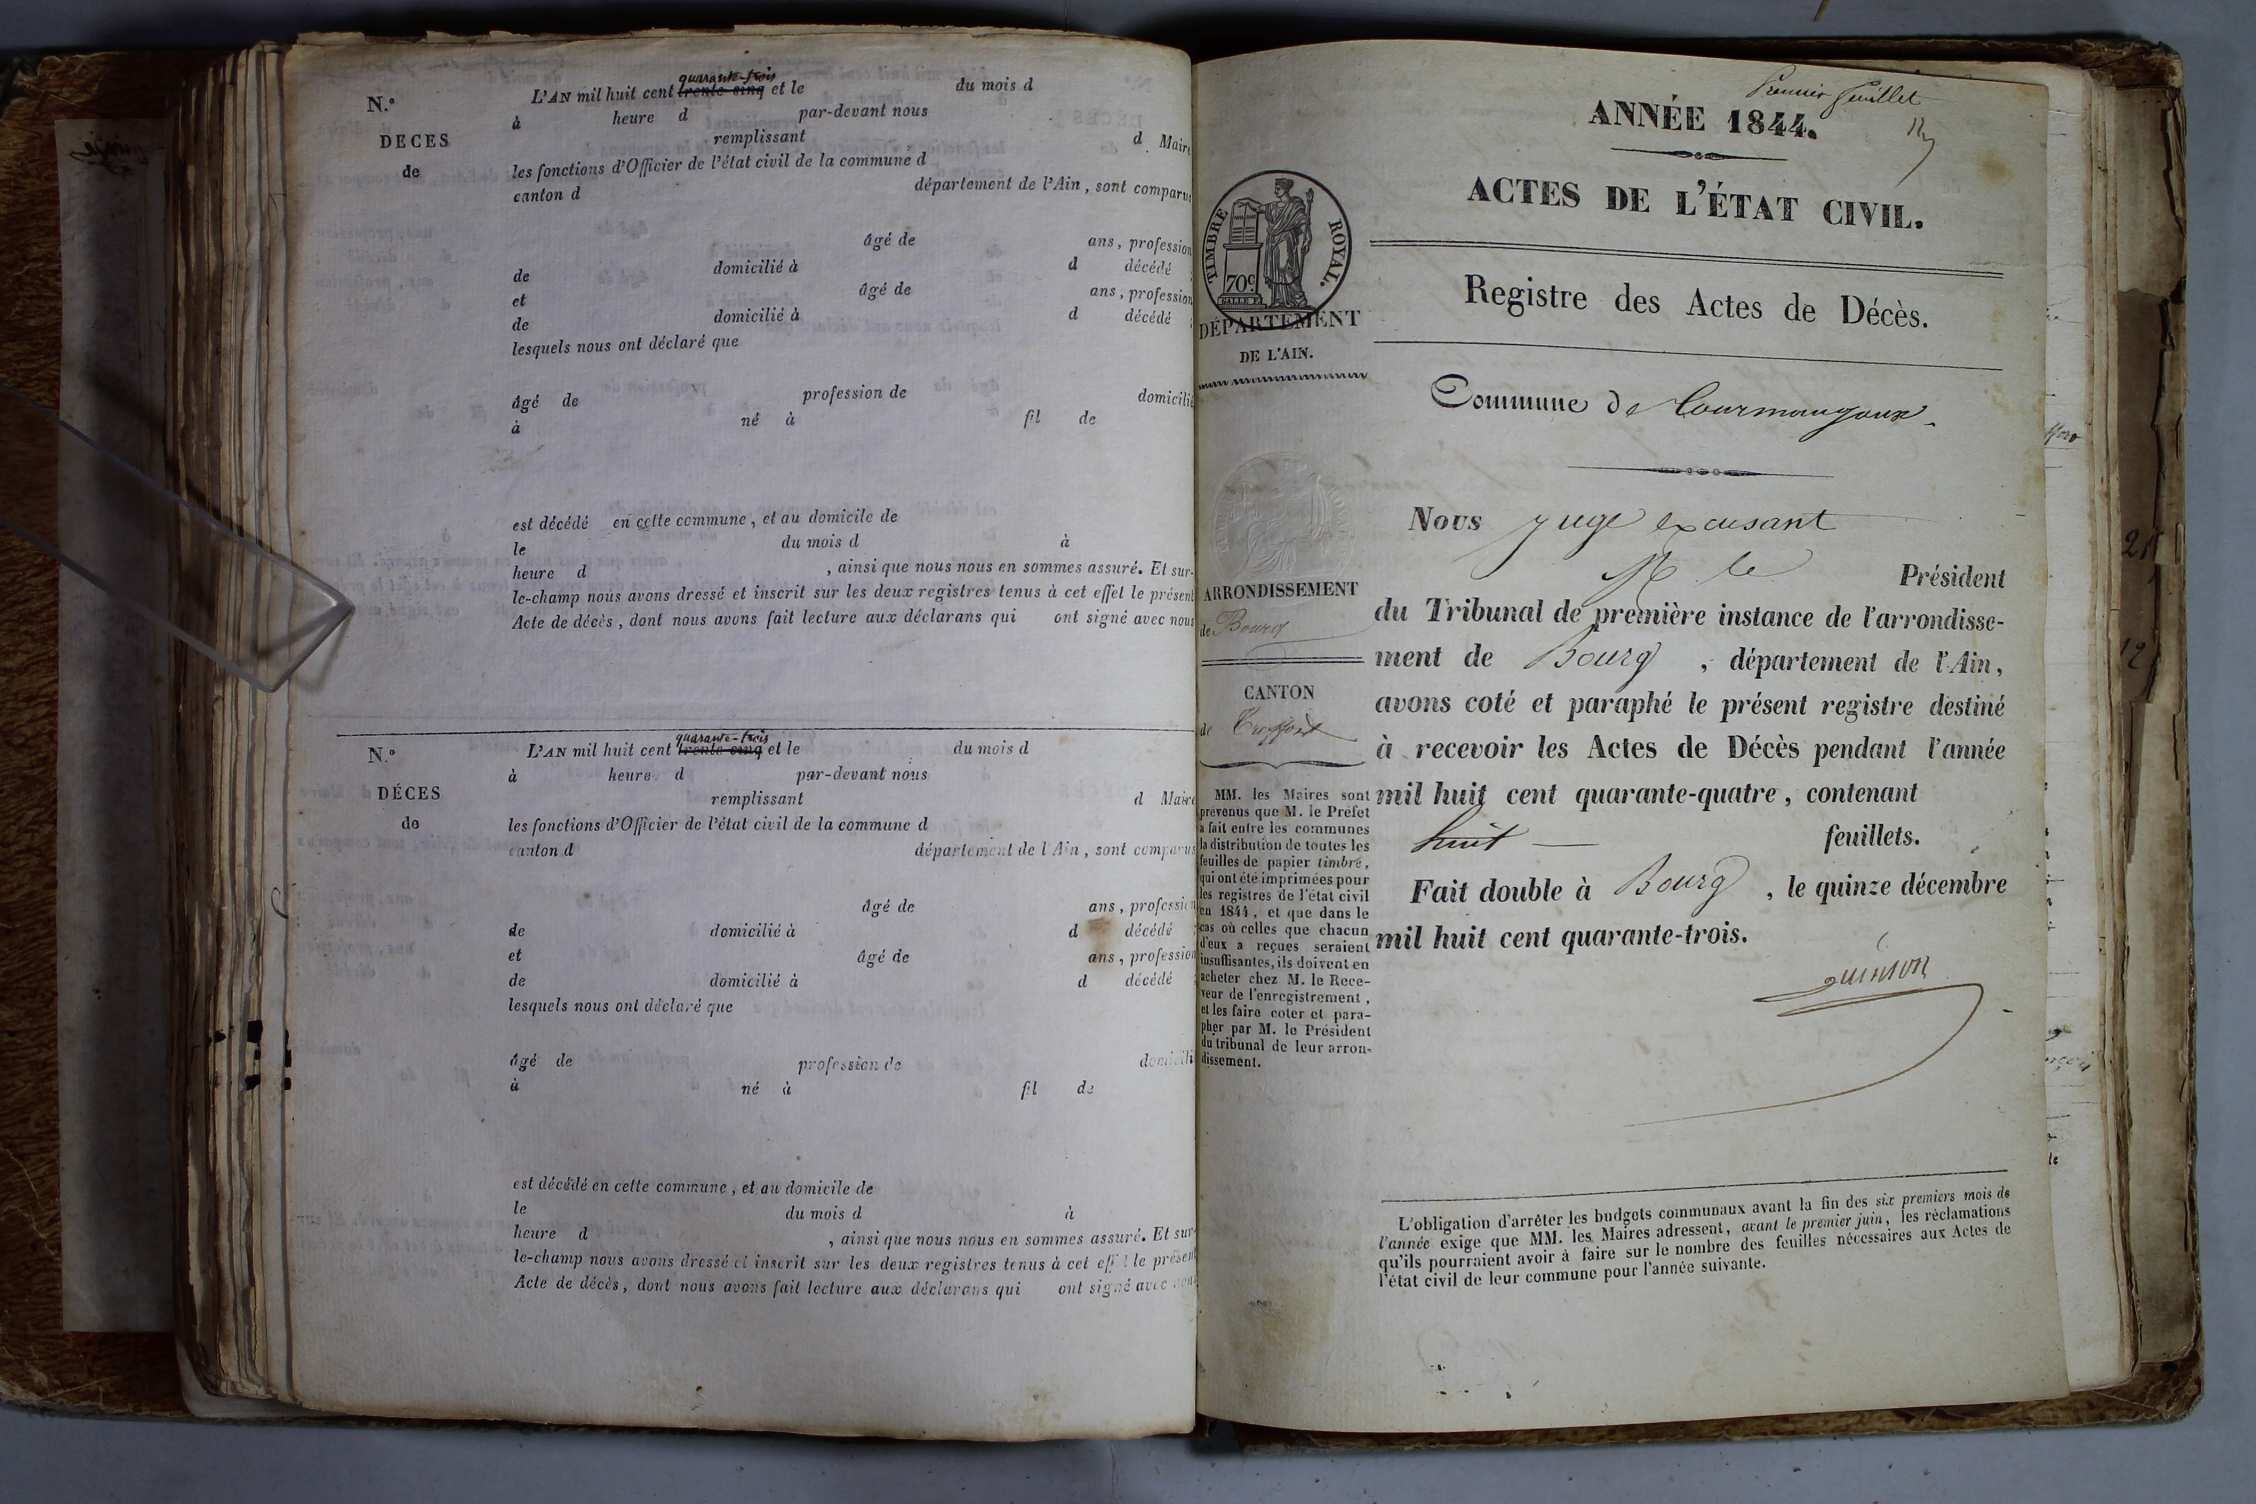 quarante-trois
N.° L'AN mil huit cent trente-cinq et le du mois d
à heure d par-devant nous
DECES remplissant d Maire
de les fonctions d'Officier de l'état civil de la commune d
canton d département de l'Ain, sont comparus
âgé de ans, profession
de domicilié à d décédé ;
et âgé de ans, profession
de domicilié à d décédé ;
lesquels nous ont déclaré que
âgé de profession de domicilié
à né à fil de
est décédé en cette commune, et au domicile de
le du mois d à
heure d , ainsi que nous nous en sommes assuré. Et sur-
le-champ nous avons dressé et inscrit sur les deux registres tenus à cet effet le présent
Acte de décès, dont nous avons fait lecture aux déclarans qui ont signé avec nous
quarante-trois
N.° L'AN mil huit cent trente-cinq et le du mois d
à heure d par-devant nous
DÉCES remplissant d Maire
de les fonctions d'Officier de l'état civil de la commune d
canton d département de l'Ain, sont comparus
âgé de ans, profession
de domicilié à d décédé ;
et âgé de ans, profession
de domicilié à d décédé ;
lesquels nous ont déclaré que
âgé de profession de domicili
à né à fil de
est décédé en cette commune, et au domicile de
le du mois d à
heure d , ainsi que nous nous en sommes assuré. Et sur-
le-champ nous avons dressé et inscrit sur les deux registres tenus à cet effet le présent
Acte de décès, dont nous avons fait lecture aux déclarans qui ont signé avec nous
Premier feuillet
ANNÉE 1844.
ACTES DE L'ÉTAT CIVIL.
Registre des Actes de Décès.
TIMBRE ROYAL.
70c
DÉPARTEMENT
DE L'AIN.
ARRONDISSEMENT
de Bourg
CANTON
de Treffort
MM. les Maires sont
prévenus que M. le Préfet
a fait entre les communes
la distribution de toutes les
feuilles de papier timbré,
qui ont été imprimées pour
les registres de l'état civil
en 1844, et que dans le
cas où celles que chacun
d'eux a reçues seraient
insuffisantes, ils doivent en
acheter chez M. le Rece-
veur de l'enregistrement,
et les faire coter et para-
pher par M. le Président
du tribunal de leur arron-
dissement.
Commune de Courmangoux.
Nous juge excusant
M. le Président
du Tribunal de première instance de l'arrondisse-
ment de Bourg , département de l'Ain,
avons coté et paraphé le présent registre destiné
à recevoir les Actes de Décès pendant l'année
mil huit cent quarante-quatre, contenant
huit feuillets.
Fait double à Bourg , le quinze décembre
mil huit cent quarante-trois.
Quinson
L'obligation d'arrêter les budgets communaux avant la fin des six premiers mois de
l'année exige que MM. les Maires adressent, avant le premier juin, les réclamations
qu'ils pourraient avoir à faire sur le nombre des feuilles nécessaires aux Actes de
l'état civil de leur commune pour l'année suivante.